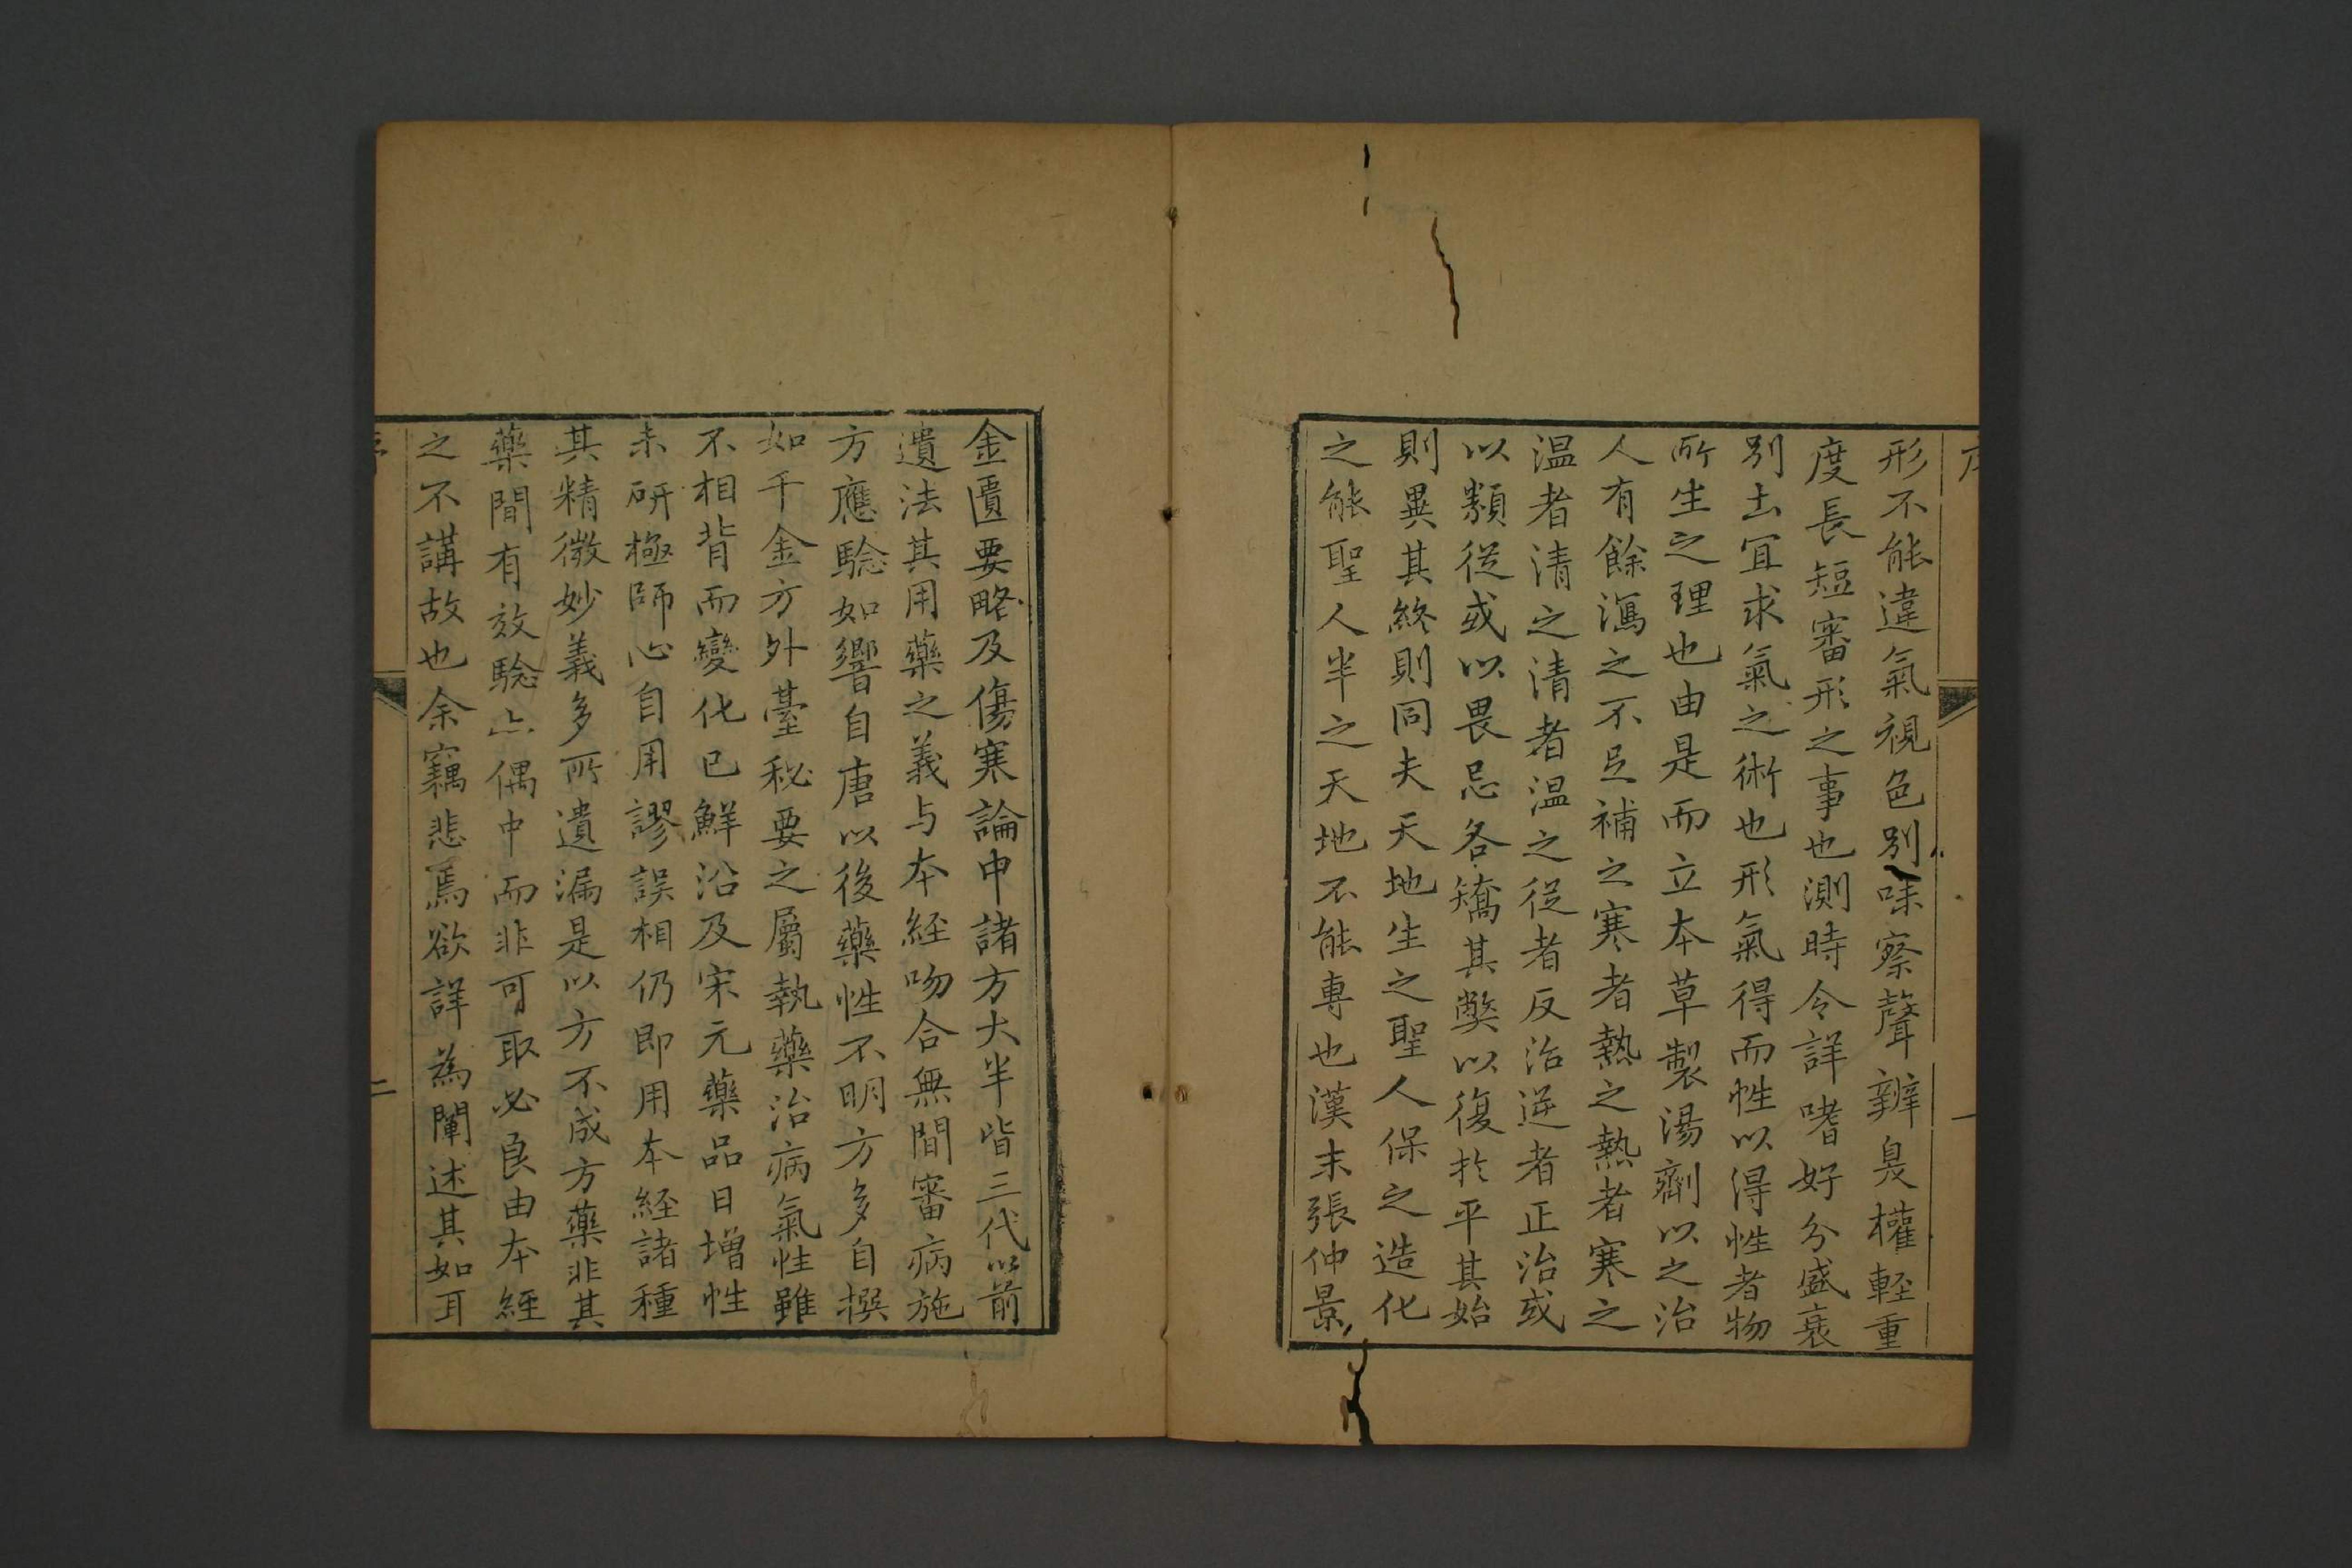 形不能違氣視色別味察聲辨臭權輕重
度長短審形之事也測時令詳嗜好分盛衰
別土宜求氣之術也形氣得而性以得性者物
所生之理也由是而立本草製湯劑以之治
人有餘瀉之不足補之寒者熱之熱者寒之
温者清之清者温之從者反治逆者正治或
以類從或以畏忌各矯其弊以復於平其始
則異其終則同夫天地生之聖人保之造化
之能聖人半之天地不能專也漢末張仲景
金匱要略及傷寒論中諸方大半皆三代以前
遺法其用藥之義与本經吻合無間審病施
方應騐如響自唐以後藥性不明方多自撰
如千金方外臺秘要之屬執藥治病氣性雖
不相背而變化已鮮沿及宋元藥品日增性
未研極師心自用謬誤相仍即用本經諸種
其精微妙義多所遺漏是以方不成方藥非其
藥間有效騐亦偶中而非可取必良由本經
之不講故也余竊悲焉欲詳為闡述其如耳
二